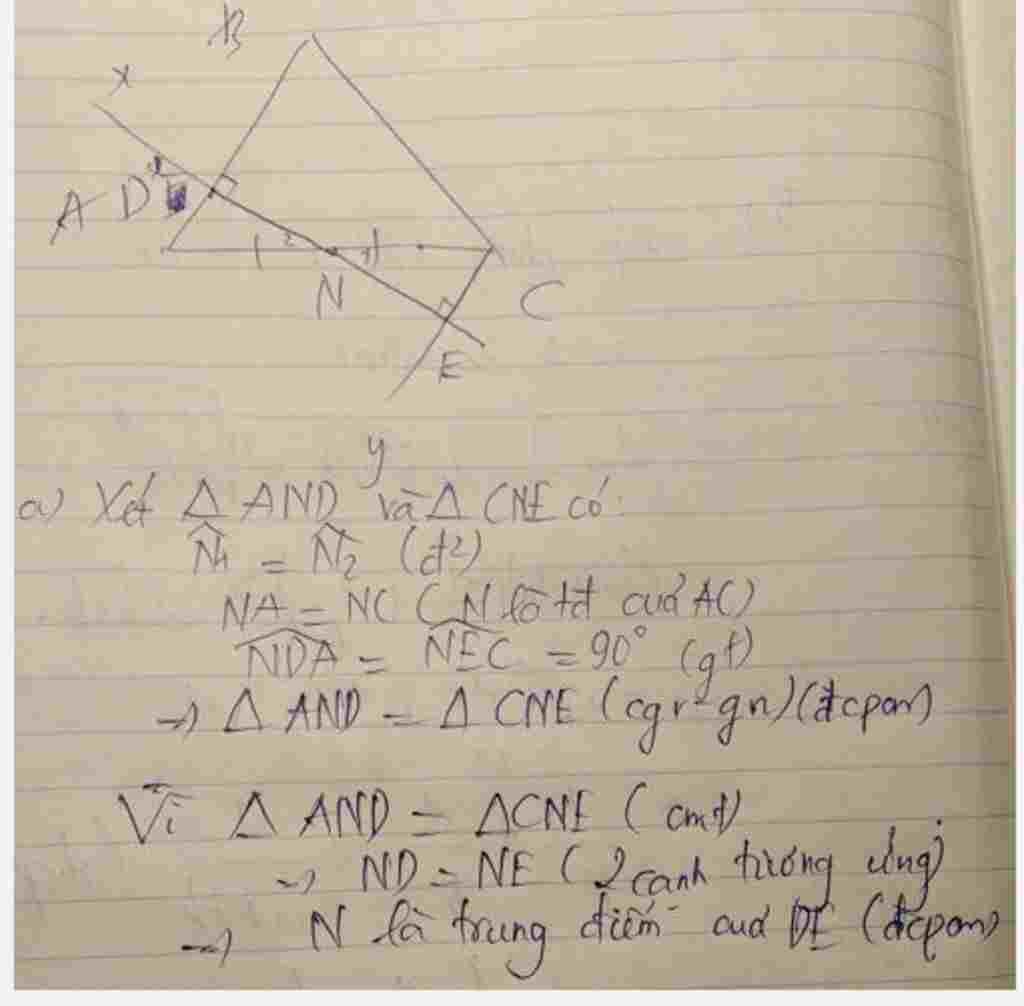 B
x
A D 1
2 1
N C
E
y
a) Xét Δ AND và Δ CNE có:
N̂1 = N̂2 (đ²)
NA = NC (N là tđ của AC)
NDA = NEC = 90° (gt)
→ Δ AND = Δ CNE (cgv-gn) (đcpcm)
Vì Δ AND = ΔCNE (cmt)
→ ND = NE (2 cạnh tương ứng)
→ N là trung điểm của DE (đcpcm)